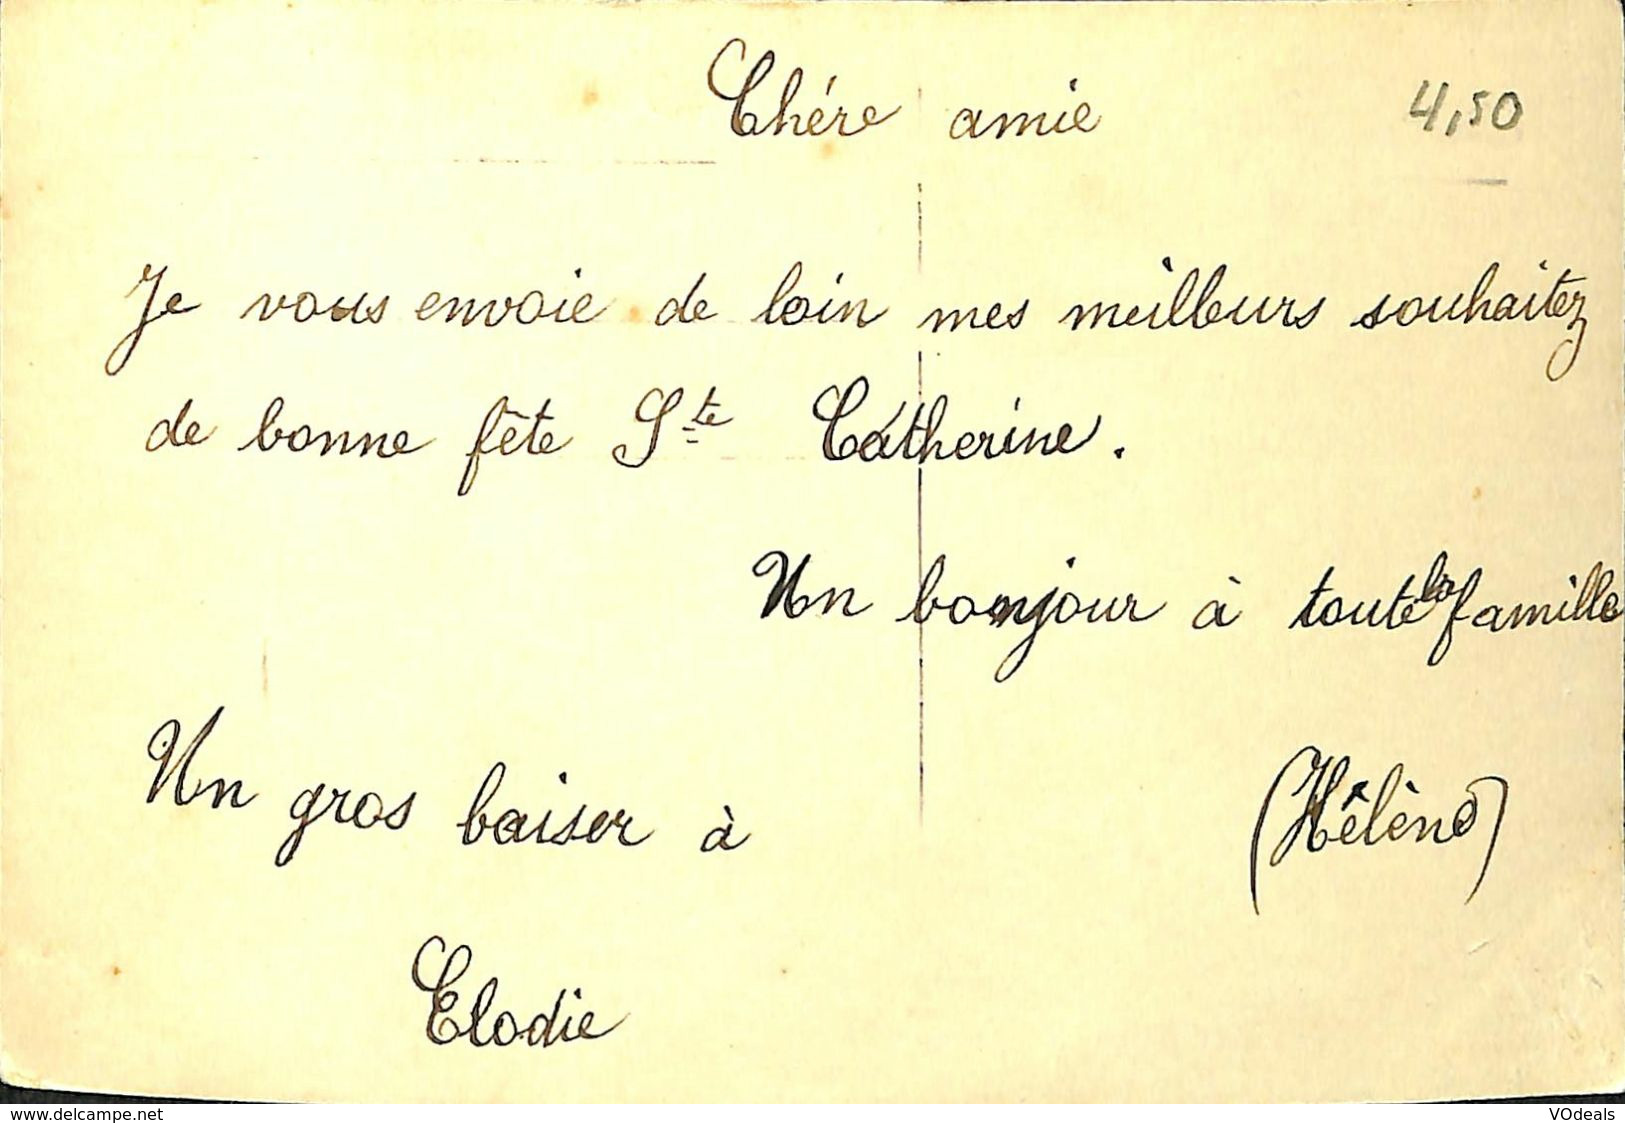 Chére amie
4,50
Je vous envoie de loin mes meilleurs souhaitez
de bonne fête Ste Catherine.
Un bonjour à toute la famille
Un gros baiser à
(Hélène)
Elodie
www.delcampe.net
VOdeals